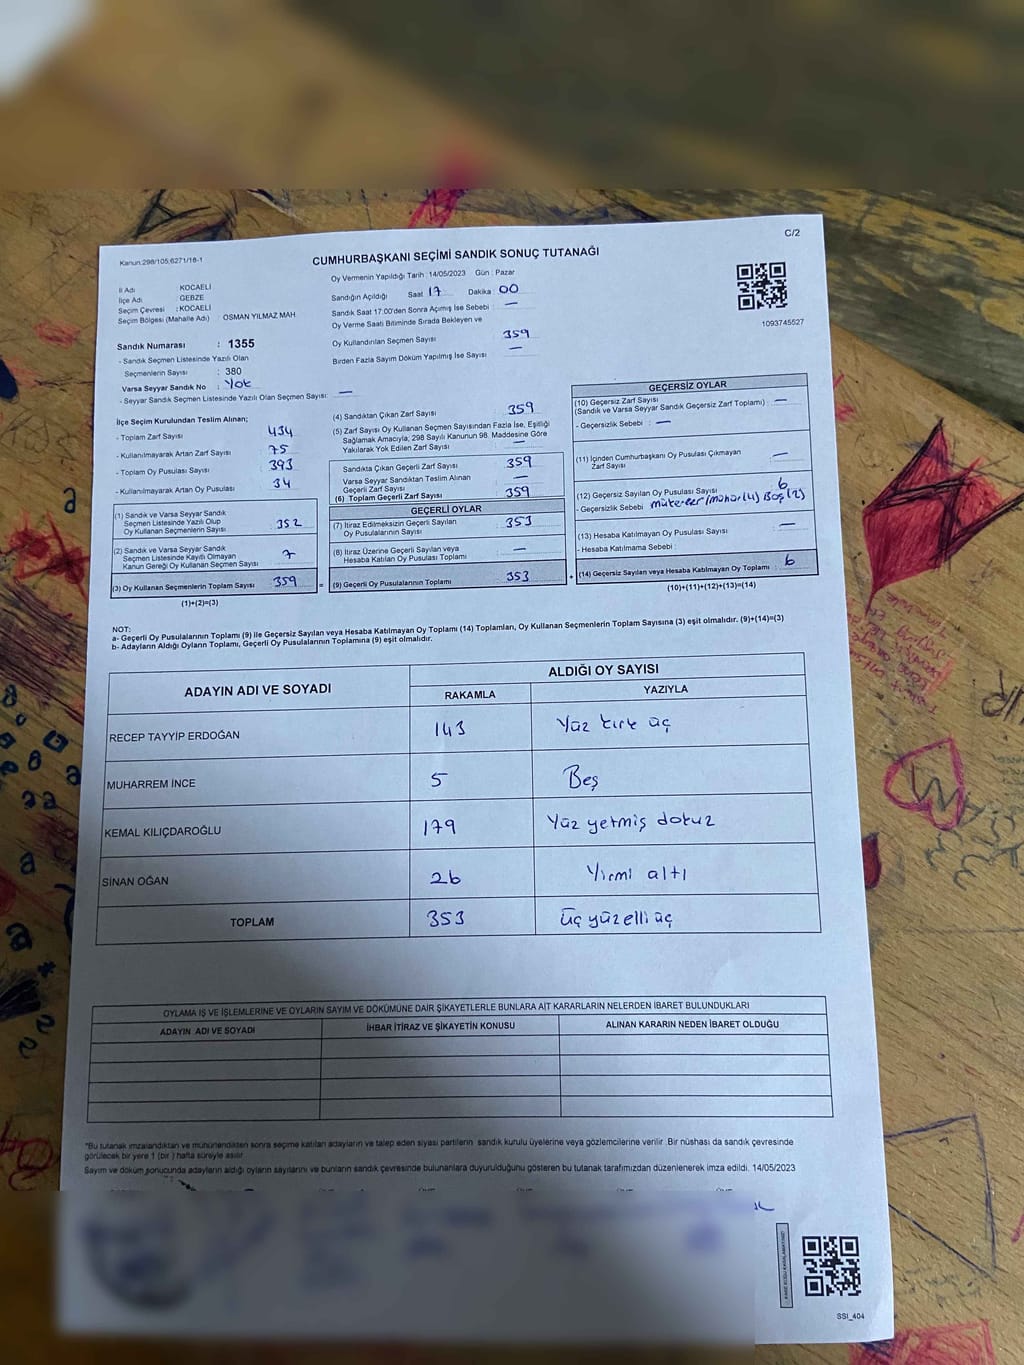 C/2
Kanun:298/105;6271/18-1
CUMHURBAŞKANI SEÇİMİ SANDIK SONUÇ TUTANAĞI
1093745527
İl Adı : KOCAELİ
İlçe Adı : GEBZE
Seçim Çevresi : KOCAELİ
Seçim Bölgesi (Mahalle Adı) : OSMAN YILMAZ MAH.
Sandık Numarası : 1355
- Sandık Seçmen Listesinde Yazılı Olan
Seçmenlerin Sayısı : 380
Varsa Seyyar Sandık No : Yok
- Seyyar Sandık Seçmen Listesinde Yazılı Olan Seçmen Sayısı: —
Oy Vermenin Yapıldığı Tarih : 14/05/2023 Gün : Pazar
Sandığın Açıldığı Saat 17 Dakika 00
Sandık Saat 17:00'den Sonra Açımış İse Sebebi : —
Oy Verme Saati Bitiminde Sırada Bekleyen ve
Oy Kullandırılan Seçmen Sayısı 359
Birden Fazla Sayım Döküm Yapılmış İse Sayısı —
İlçe Seçim Kurulundan Teslim Alınan;
- Toplam Zarf Sayısı 434
- Kullanılmayarak Artan Zarf Sayısı 75
- Toplam Oy Pusulası Sayısı 393
- Kullanılmayarak Artan Oy Pusulası 34
(1) Sandık ve Varsa Seyyar Sandık
Seçmen Listesinde Yazılı Olup
Oy Kullanan Seçmenlerin Sayısı 352
(2) Sandık ve Varsa Seyyar Sandık
Seçmen Listesinde Kayıtlı Olmayan
Kanun Gereği Oy Kullanan Seçmen Sayısı 7
(3) Oy Kullanan Seçmenlerin Toplam Sayısı 359 =
(1)+(2)=(3)
(4) Sandıktan Çıkan Zarf Sayısı 359
(5) Zarf Sayısı Oy Kullanan Seçmen Sayısından Fazla İse, Eşitliği
Sağlamak Amacıyla; 298 Sayılı Kanunun 98. Maddesine Göre
Yakılarak Yok Edilen Zarf Sayısı —
Sandıkta Çıkan Geçerli Zarf Sayısı 359
Varsa Seyyar Sandıktan Teslim Alınan
Geçerli Zarf Sayısı —
(6) Toplam Geçerli Zarf Sayısı 359
GEÇERLİ OYLAR
(7) İtiraz Edilmeksizin Geçerli Sayılan
Oy Pusulalarının Sayısı 353
(8) İtiraz Üzerine Geçerli Sayılan veya
Hesaba Katılan Oy Pusulası Toplamı —
(9) Geçerli Oy Pusulalarının Toplamı 353 +
GEÇERSİZ OYLAR
(10) Geçersiz Zarf Sayısı
(Sandık ve Varsa Seyyar Sandık Geçersiz Zarf Toplamı) : —
- Geçersizlik Sebebi : —
(11) İçinden Cumhurbaşkanı Oy Pusulası Çıkmayan
Zarf Sayısı —
(12) Geçersiz Sayılan Oy Pusulası Sayısı 6
- Geçersizlik Sebebi mükerrer/mühür(4) Boş(2)
(13) Hesaba Katılmayan Oy Pusulası Sayısı —
- Hesaba Katılmama Sebebi :
(14) Geçersiz Sayılan veya Hesaba Katılmayan Oy Toplamı : 6
(10)+(11)+(12)+(13)=(14)
NOT:
a- Geçerli Oy Pusulalarının Toplamı (9) ile Geçersiz Sayılan veya Hesaba Katılmayan Oy Toplamı (14) Toplamları, Oy Kullanan Seçmenlerin Toplam Sayısına (3) eşit olmalıdır. (9)+(14)=(3)
b- Adayların Aldığı Oyların Toplamı, Geçerli Oy Pusulalarının Toplamına (9) eşit olmalıdır.
ADAYIN ADI VE SOYADI ALDIĞI OY SAYISI
RAKAMLA YAZIYLA
RECEP TAYYİP ERDOĞAN 143 Yüz kırk üç
MUHARREM İNCE 5 Beş
KEMAL KILIÇDAROĞLU 179 Yüz yetmiş dokuz
SİNAN OĞAN 26 Yirmi altı
TOPLAM 353 üç yüz elli üç
OYLAMA İŞ VE İŞLEMLERİNE VE OYLARIN SAYIM VE DÖKÜMÜNE DAİR ŞİKAYETLERLE BUNLARA AİT KARARLARIN NELERDEN İBARET BULUNDUKLARI
ADAYIN ADI VE SOYADI İHBAR İTİRAZ VE ŞİKAYETİN KONUSU ALINAN KARARIN NEDEN İBARET OLDUĞU
*Bu tutanak imzalandıktan ve mühürlendikten sonra seçime katılan adayların ve talep eden siyasi partilerin sandık kurulu üyelerine veya gözlemcilerine verilir. Bir nüshası da sandık çevresinde
görülecek bir yere 1 (bir ) hafta süreyle asılır.
Sayım ve döküm sonucunda adayların aldığı oyların sayılarını ve bunların sandık çevresinde bulunanlara duyurulduğunu gösteren bu tutanak tarafımızdan düzenlenerek imza edildi. 14/05/2023
SSI_404